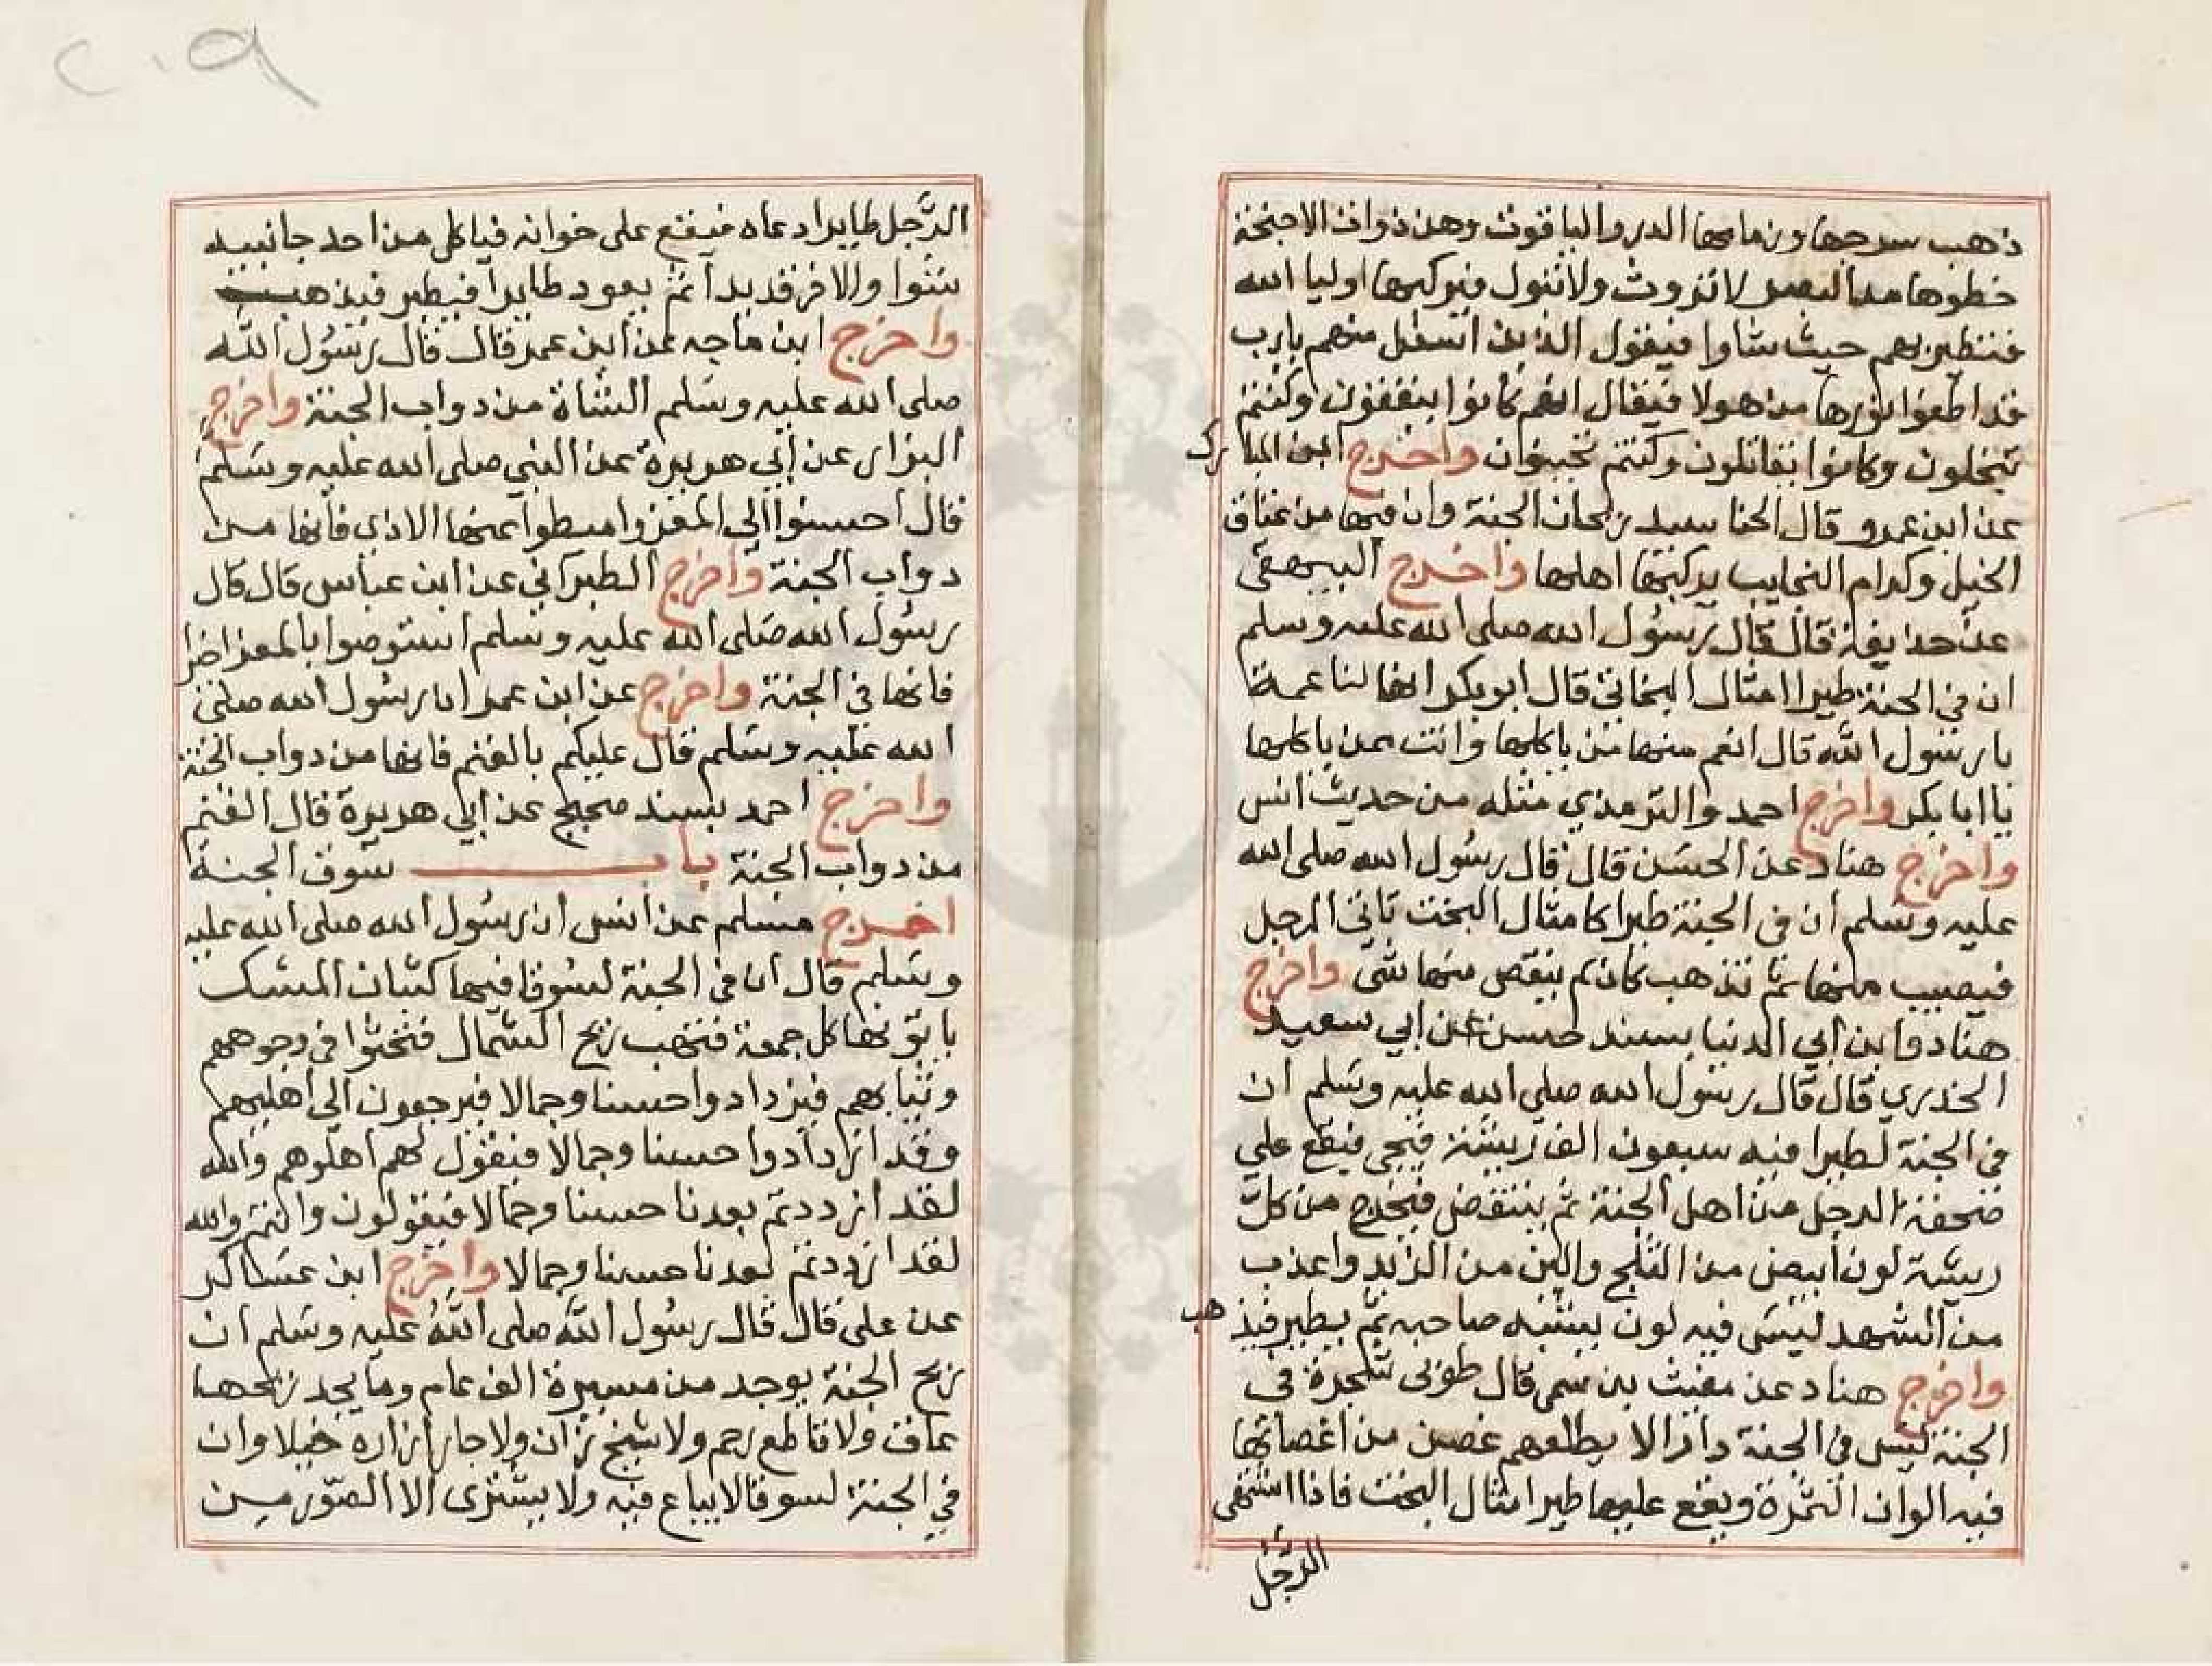 ذهب سرجها وزمامها الدر والياقوت وهن ذوات الاجنحة
خطوها مد البصر لا تروث ولا تبول فيركبها اوليا الله
فتطير بهم حيث شاوا فيقول الذين اسفل منهم يارب
قد اطفوا نورنا من هولا فيقال انهم كانوا ينفقون وكنتم
تبخلون وكانوا يقاتلون وكنتم تجبنون واخرج ابن المبارك
عن ابن عمرو قال الحنا سيد ريحان الجنة وان فيها من عتاق
الخيل وكرام النجايب يركبها اهلها واخرج البيهقى
عن حذيفة قال قال رسول الله صلى الله عليه وسلم
ان في الجنة طيرا امثال البخاتى قال ابو بكر انها لناعمة
يارسول الله قال انعم منها من ياكلها وانت ممن ياكلها
يا ابا بكر واخرج احمد والترمذي مثله من حديث انس
واخرج هناد عن الحسن قال قال رسول الله صلى الله
عليه وسلم ان في الجنة طيرا كامثال البخت تاتى الرجل
فيصيب منها ثم تذهب كان لم ينقص منها شى واخرج
هناد وابن ابي الدنيا بسند حسن عن ابي سعيد
الخذري قال قال رسول الله صلى الله عليه وسلم ان
في الجنة لطيرا فيه سبعون الف ريشة فيجى فيقع على
صحفة الرجل من اهل الجنة ثم ينتفض فيخرج من كل
ريشة لون ابيض من الثلج والين من الزبد واعذب
من الشهد ليس فيه لون يشبه صاحبه ثم يطير فيذهب
واخرج هناد عن مغيث بن سمى قال طوبى شجرة في
الجنة ليس في الجنة دار الا يظلهم غصن من اغصانها
فيه الوان الثمرة ويقع عليها طير امثال البخت فاذا اشتهى
الرجل
٢٠٩
الرجل طايرا دعاه فيقع على خوانه فياكل من احد جانبيه
شوا والاخر قديدا ثم يعود طايرا فيطير فيذهب
واخرج ابن ماجه عن ابن عمر قال قال رسول الله
صلى الله عليه وسلم الشاة من دواب الجنة واخرج
البزار عن ابي هريرة عن النبي صلى الله عليه وسلم
قال احسنوا الى المعز وامطوا عنها الاذي فانها من
دواب الجنة واخرج الطبراني عن ابن عباس قال قال
رسول الله صلى الله عليه وسلم استوصوا بالمعز اخرا
فانها في الجنة واخرج عن ابن عمر ان رسول الله صلى
الله عليه وسلم قال عليكم بالغنم فانها من دواب الجنة
واخرج احمد بسند صحيح عن ابي هريرة قال الغنم
من دواب الجنة باب سوق الجنة
اخرج مسلم عن انس ان رسول الله صلى الله عليه
وسلم قال ان في الجنة لسوقا فيها كثبان المسك
ياتونها كل جمعة فتهب ريح الشمال فتحثوا في وجوههم
وثيابهم فيزدادوا حسنا وجمالا فيرجعون الى اهليهم
وقد ازدادوا حسنا وجمالا فيقول لهم اهلوهم والله
لقد ازددتم بعدنا حسنا وجمالا فيقولون وانتم والله
لقد ازددتم بعدنا حسنا وجمالا واخرج ابن عساكر
عن على قال قال رسول الله صلى الله عليه وسلم ان
ريح الجنة يوجد من مسيرة الف عام وما يجد ريحها
عاق ولا قاطع رحم ولا شيخ زان ولا جار ازاره خيلا وان
في الجنة لسوقا لا يباع فيه ولا يشترى الا الصور من